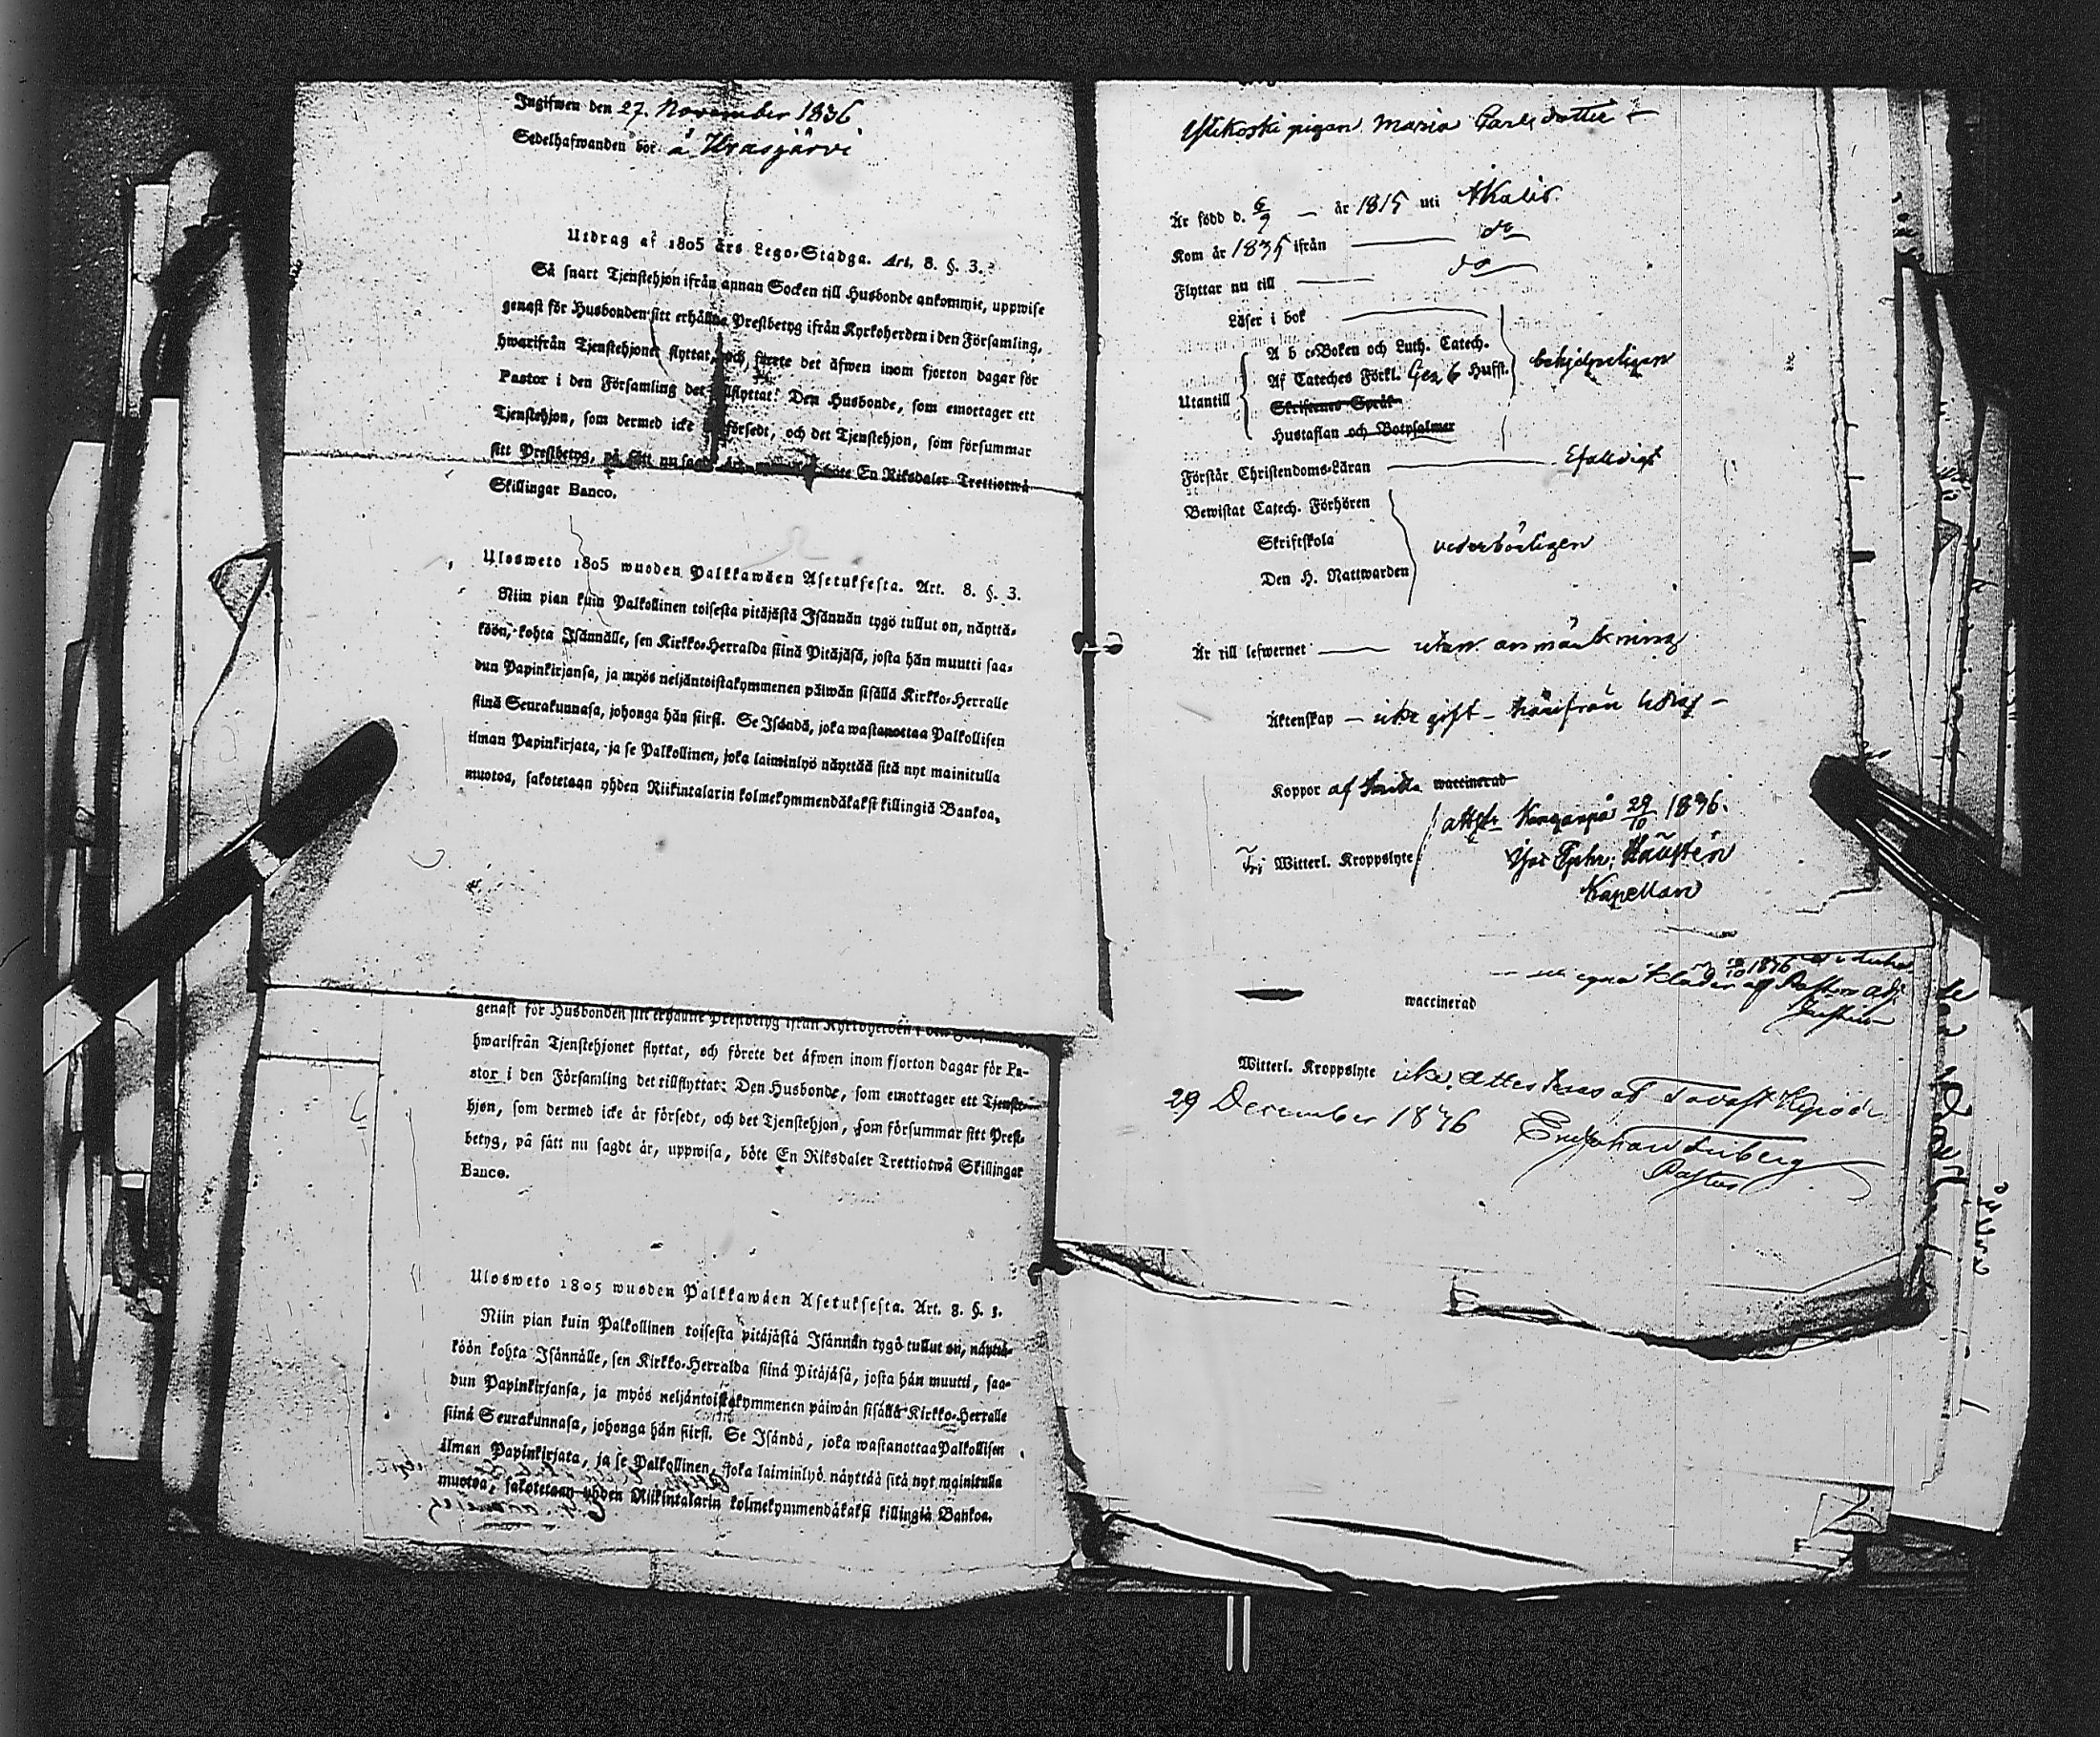 Ingifwen den 27. November 1836
Sedelhafwanden bor å Urasjärvi
Utdrag af 1805 års Lego-Stadga. Art. 8. §. 3.
Så snart Tjenstehjon ifrån annan Socken till Husbonde ankommit, uppwise
genast för Husbonden sitt erhållne Prestbetyg ifrån Kyrkoherden i den Församling,
hwarifrån Tjenstehjonet flyttat, och förete det äfwen inom fjorton dagar för
Pastor i den Församling det tillflyttat: Den Husbonde, som emottager ett
Tjenstehjon, som dermed icke försedt, och det Tjenstehjon, som försummar
sitt Prestbetyg, på sätt nu böte En Riksdaler Trettiotwå
Skillingar Banco.
Ulosweto 1805 wuoden Palkkawäen Asetuksesta. Art. 8. §. 3.
Niin pian kuin Palkollinen toisesta pitäjästä Isännän tygö tullut on, näyttä-
köön, kohta Isännälle, sen Kirkko-Herralda siinä Pitäjäsä, josta hän muutti saa-
dun Papinkirjansa, ja myös neljäntoistakymmenen päiwän sisällä Kirkko-Herralle
siinä Seurakunnasa, johonga hän siirsi. Se Isändä, joka wastanottaa Palkollisen
ilman Papinkirjata, ja se Palkollinen, joka laiminlyö näyttää sitä nyt mainitulla
muotoa, sakotetaan yhden Riikintalarin kolmekymmendäkaksi killingiä Bankoa.
genast för Husbonden sitt erhållne Prestbetyg ifrån Kyrkoherden i den
hwarifrån Tjenstehjonet flyttat, och förete det äfwen inom fjorton dagar för Pa-
stor i den Församling det tillflyttat: Den Husbonde, som emottager ett Tjenste-
hjon, som dermed icke är försedt, och det Tjenstehjon, som försummar sitt Prest-
betyg, på sätt nu sagdt är, uppwisa, böte En Riksdaler Trettiotwå Skillingar
Banco.
Ulosweto 1805 wuoden Palkkawäen Asetuksesta. Art. 8. §. 3.
Niin pian kuin Palkollinen toisesta pitäjästä Isännän tygö tullut on, näyttä-
köön kohta Isännälle, sen Kirkko-Herralda siinä Pitäjäsä, josta hän muutti, saa-
dun Papinkirjansa, ja myös neljäntoistakymmenen päiwän sisällä Kirkko-Herralle
siinä Seurakunnasa, johonga hän siirsi. Se Isändä, joka wastanottaa Palkollisen
ilman Papinkirjata, ja se Palkollinen, joka laiminlyö näyttää sitä nyt mainitulla
muotoa, sakotetaan yhden Riikintalarin kolmekymmendäkaksi killingiä Bankoa.
pigan Maria Carlsdotter
Är född d. 6/9 år 1815 uti Ikalis
Kom år 1835 ifrån do
Flyttar nu till do
Läser i bok
A b c-Boken och Luth. Catech.
Utantill Af Cateches Förkl. Gen 6 Hufst. behjelpeligen
Skriftenes Språk
Hustaflan och Botpsalmer
Förstår Christendoms-Läran Efaldigt
Bewistat Catech. Förhören
Skriftskola vederbörligen
Den H. Nattwarden
Är till lefwernet utan anmärkning
Äktenskap icke gift härifrån ledig
Koppor af waccinerad
attest Kangasniemi 29/10 1836.
Witterl. Kroppslyte
Kapellan
egna kläder af Pastors Adj.
waccinerad
Witterl. Kroppslyte icke. Attesteras af
29 December 1836
Pastor